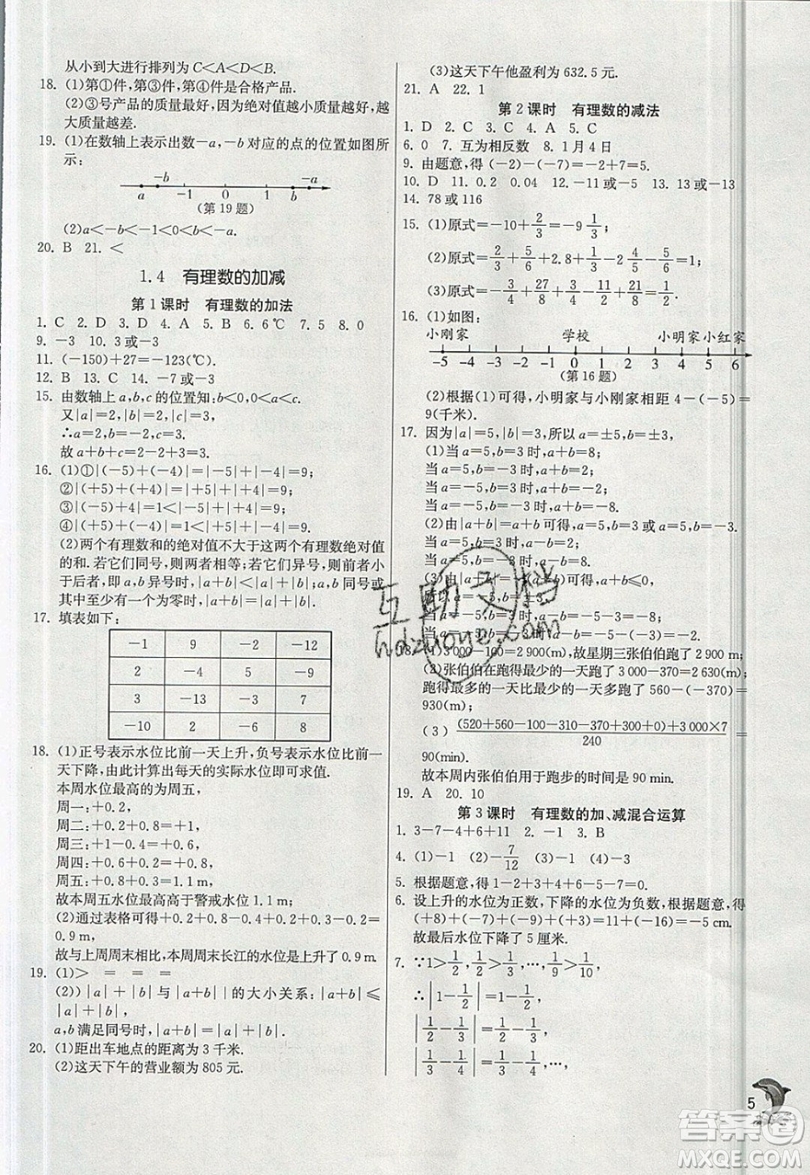 从小到大进行排列为 C<A<D<B.
18. (1)第①件,第③件,第④件是合格产品.
(2)③号产品的质量最好,因为绝对值越小质量越好,越
大质量越差.
19. (1)在数轴上表示出数-a,-b对应的点的位置如图所
示:
-b -a
a -1 0 1 b
(第19题)
(2)a<-b<-1<0<b<-a.
20. B 21. <
1.4 有理数的加减
第1课时 有理数的加法
1. C 2. D 3. D 4. A 5. B 6. 6℃ 7. 5 8. 0
9. -3 10. 3或-3
11. (-150)+27=-123(℃).
12. B 13. C 14. -7或-3
15. 由数轴上a,b,c的位置知:b<0,0<a<c.
又|a|=2,|b|=2,|c|=3.
∴a=2,b=-2,c=3.
故a+b+c=2-2+3=3.
16. (1)①|(-5)+(-4)|=|-5|+|-4|=9;
②|(+5)+(+4)|=|+5|+|+4|=9;
③|(+5)+(-4)|=1<|-5|+|-4|=9;
④|(+5)+(-4)|=1<|-5|+|+4|=9;
(2)两个有理数和的绝对值不大于这两个有理数绝对值
的和.若它们同号,则两者相等;若它们异号,则前者小于
后者,即a,b异号时,|a+b|<|a|+|b|;a,b同号时
或其中至少有一个为零时,|a+b|=|a|+|b|.
17. 填表如下:
-1 9 -2 -12
2 4 -3 -9
3 -13 -3 7
-10 2 -6 8
18. (1)正号表示水位比前一天上升,负号表示水位比前一
天下降,由此计算出每天的实际水位即可求值.
本周水位最高的为周五,
周一:+0.2,
周二:+0.2+0.8=+1.0,
周三:+0.2+0.8-0.4=+0.6,
周四:+0.2+0.8-0.4+0.2=+0.8,
周五:+0.2+0.8-0.4+0.2+0.3=+1.1,
故本周周五水位最高高于警戒水位1.1 m.
(2)通过表格可得+0.2+0.8-0.4+0.2+0.3-0.2=
0.9 m,
故与上周周末相比,本周周末长江的水位是上升了0.9 m.
19. (1)> = = =
(2))|a|+|b|与|a+b||的大小关系:|a+b|⩽
|a|+|b|,
a,b满足同号时,|a|+|b|=|a+b|.
20. (1)距出车地点的距离为3千米.
(2)这天下午的营业额为805元.
(3)这天下午他盈利为632.5元.
21. A 22. 1
第2课时 有理数的减法
1. D 2. C 3. C 4. A 5. C
6. 0 7. 互为相反数 8. 1月4日
9. 由题意,得(-2)-(-7)=-2+7=5.
10. D 11. 0.2 0.04 12. -11或-5 13. -2或-8
14. 78或116
15. (1)原式=-10+2/3=-9 1/3;
(2)原式=-2/5+2.8+2/5-2=2.8-2=4/5;
(3)原式=-3/4+27/8+3/4-21/8=27/8-21/8=3/4.
16. (1)如图:
小刚家 学校 小明家小红家
-5 -4 -3 -2 -1 0 1 2 3 4 5 6
(第16题)
(2)根据(1)可得,小明家与小刚家距离4-(-5)=
9(千米).
17. 因为|a|=5,|b|=3,所以a=±5,b=±3,
(1)当a=5,b=3时,a+b=8;
当a=5,b=-3时,a+b=2;
当a=-5,b=3时,a+b=-2;
当a=-5,b=-3时,a+b=-8.
(2)由|a+b|=a+b可得,a=5,b=3或a=5,b=-3.
当a=5,b=3时,a-b=2,
当a=5,b=-3时,a-b=8.
(3)由|a+b|=-a-b可得,a+b⩽0.
当a=-5,b=3时,a-b=-5-3=-8;
当a=-5,b=-3时,a-b=-5+3=-2.
18. (1)3 000-100=2 900(m),故星期三张伯伯跑了2 900 m.
(2)张伯伯在跑得最少的一天跑了3 000-370=2 630(m),
跑得最多的一天比最少的一天多跑了560-(-370)=
930(m);
(3)(520+560-100-310-370+300+0)+3 000×7/240=
90(min).
故本周内张伯伯用于跑步的时间是90 min.
19. A 20. 10
第3课时 有理数的加、减混合运算
1. 3-7-4+6+11 2. -1 3. B
4. (1)-1 (2)-7/12 (3)-1 (4)-3
5. 根据题意,得1-2+9-4+1=5.
6. 设上升的水位为正数,下降的水位为负数,根据题意,得
(+8)+(-7)+(-9)+(+3)=(+11)+(-16)=-5 cm.
故最后水位下降了5厘米.
7. ∵1>1/2,1/2>1/3,…,1/9>1/10,
∴|1-1/2|=1-1/2,
|1/2-1/3|=1/2-1/3,
|1/3-1/4|=1/3-1/4,…,
5
互助文档
hdzuone.com
答案圈
MXQE.COM